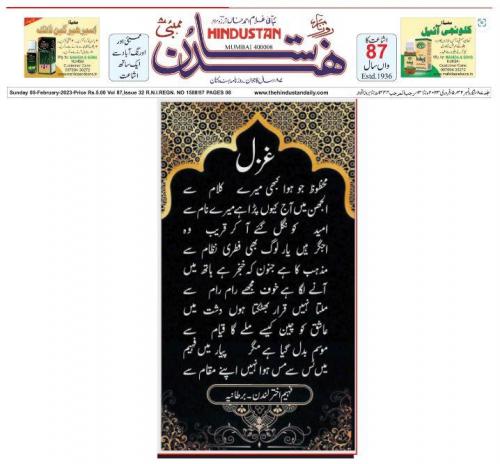 HINDUSTAN
MUMBAI 400008
روزنامہ
ہندستان
ممبئی
ممبئی اور
اورنگ آباد سے
ایک ساتھ
اشاعت
اشاعت کا
87
واں سال
Estd.1936
کلونجی آئیل
Customer Care
Sunday 05-February-2023-Price Rs.5.00 Vol 87,Issue 32 R.N.I.REGN. NO 1588/57 PAGES 08 www.thehindustandaily.com
غزل
محظوظ جو ہوا بھی میرے کلام سے
الجھن میں آج کیوں پڑا ہے میرے نام سے
امید کو نگل گئے آ کر قریب وہ
اجگر ہیں یار لوگ بھی فطری نظام سے
مذہب کا ہے جنون کہ خنجر ہے ہاتھ میں
آنے لگا ہے خوف مجھے رام رام سے
ملتا نہیں قرار بھٹکتا ہوں دشت میں
عاشق کو چین کیسے ملے گا قیام سے
موسم بدل گیا ہے مگر پیار میں فہیم
میں کس سے مس ہوا نہیں اپنے مقام سے
فہیم اختر لندن۔ برطانیہ